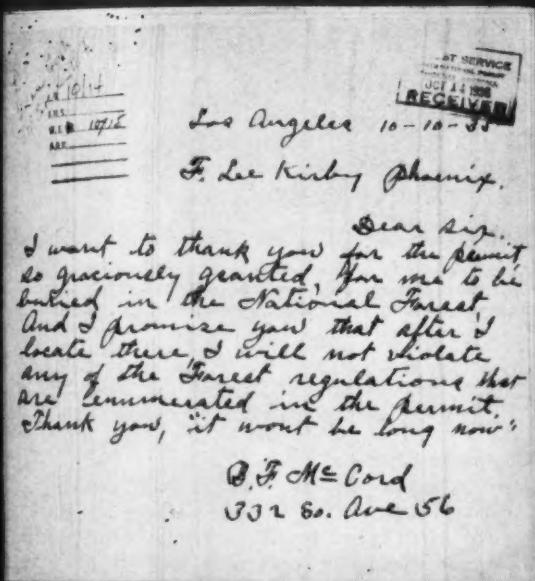 10/14
10/15
ST SERVICE
OCT 14
RECEIVED
Los Angeles 10-10-35
F. Lee Kirby Phoenix.
Dear Sir.
I want to thank you for the permit
so graciously granted, for me to be
buried in the National Forest.
And I promise you that after I
locate there, I will not violate
any of the Forest regulations that
are enumerated in the permit.
Thank you, "it wont be long now"
B. F. McCord
332 So. Ave 56